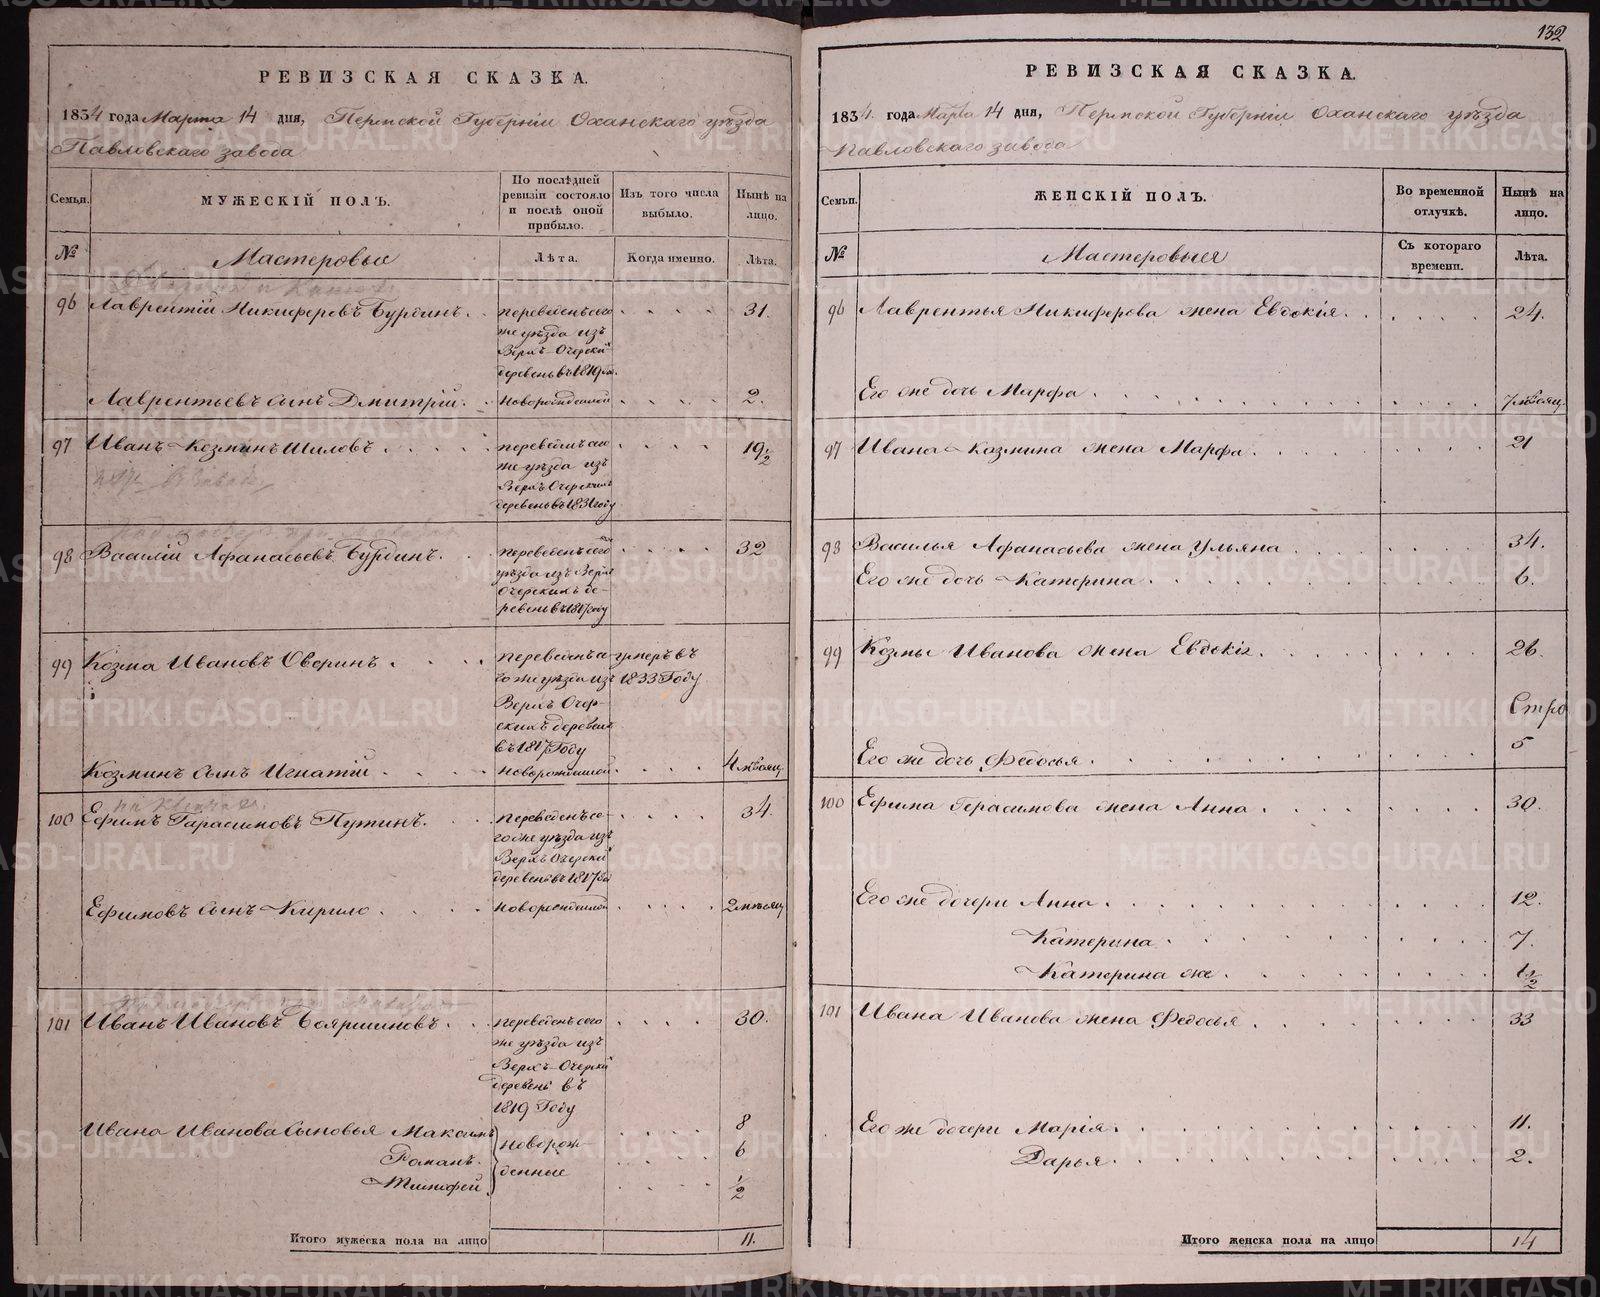 РЕВИЗСКАЯ СКАЗКА.
1834 года Марта 14 дня, Пермской Губерніи Оханскаго уѣзда
Павловскаго завода
Семьи.
МУЖЕСКІЙ ПОЛЪ.
По послѣдней ревизіи состояло и послѣ оной прибыло.
Изъ того числа выбыло.
Нынѣ на лицо.
№
Мастеровые
Лѣта.
Когда именно.
Лѣта.
96 Лаврентій Никифоровъ Бурдинъ . . переведенъ сего . . . . 31.
же уѣзда изъ
Верхъ-Очерскихъ
деревень въ 1819 го.
Лаврентьевъ сынъ Дмитрій . . новорожденной . . . . 2.
97 Иванъ Козминъ Шиловъ . . . . переведенъ сего . . . . 19 1/2
же уѣзда изъ
Верхъ Очерскихъ
деревень въ 1831 году
98 Василій Афанасьевъ Бурдинъ . . переведенъ сего . . . . 32
уѣзда изъ Верхъ
Очерскихъ де-
ревень въ 1817 году
99 Козма Ивановъ Оверинъ . . . . переведенъ се- умеръ въ
го же уѣзда изъ 1833 Году
Верхъ Очер-
скихъ деревень
въ 1817 Году
Козминъ сынъ Игнатій . . . . новорожденной . . . . 4 мѣсяц.
100 Ефимъ Гарасимовъ Путинъ . . переведенъ се- . . . . 34.
го же уѣзда изъ
Верхъ Очерскихъ
деревень въ 1817 го
Ефимовъ сынъ Кирило . . . . новорожденной . . . . 2 мѣсяц.
101 Иванъ Ивановъ Бояршиновъ . . . переведенъ сего . . . . 30.
же уѣзда изъ
Верхъ-Очерскихъ
деревень въ
1819 Году
Ивана Иванова Сыновья Максимъ новорож- . . . . 8
Романъ. . . . . 6
денные
Тимофей . . . . 1/2
Итого мужеска пола на лицо 11.
132
РЕВИЗСКАЯ СКАЗКА.
1834. года Марта 14 дня, Пермской Губерніи Оханскаго уѣзда
Павловскаго завода
Семьи.
ЖЕНСКІЙ ПОЛЪ.
Во временной отлучкѣ.
Нынѣ на лицо.
№
Мастеровыя
Съ котораго времени.
Лѣта.
96 Лаврентья Никифорова жена Евдокія . . . . . . 24.
Его же дочь Марфа . . . . . . 7 мѣсяц.
97 Ивана Козмина жена Марфа . . . . . . 21
98 Василья Афанасьева жена Ульяна . . . . . . 34.
Его же дочь Катерина . . . . . . 6.
99 Козмы Иванова жена Евдокія . . . . . . 26.
Его же дочь Федосья . . . . . . 5
100 Ефима Герасимова жена Анна . . . . . . 30.
Его же дочери Анна . . . . . . 12.
Катерина . . . . . . 7.
Катерина же . . . . . . 1 1/2
101 Ивана Иванова жена Федосья . . . . . . 33
Его же дочери Марія . . . . . . 11.
Дарья . . . . . . 2.
Итого женска пола на лицо 14
METRIKI.GASO-URAL.RU